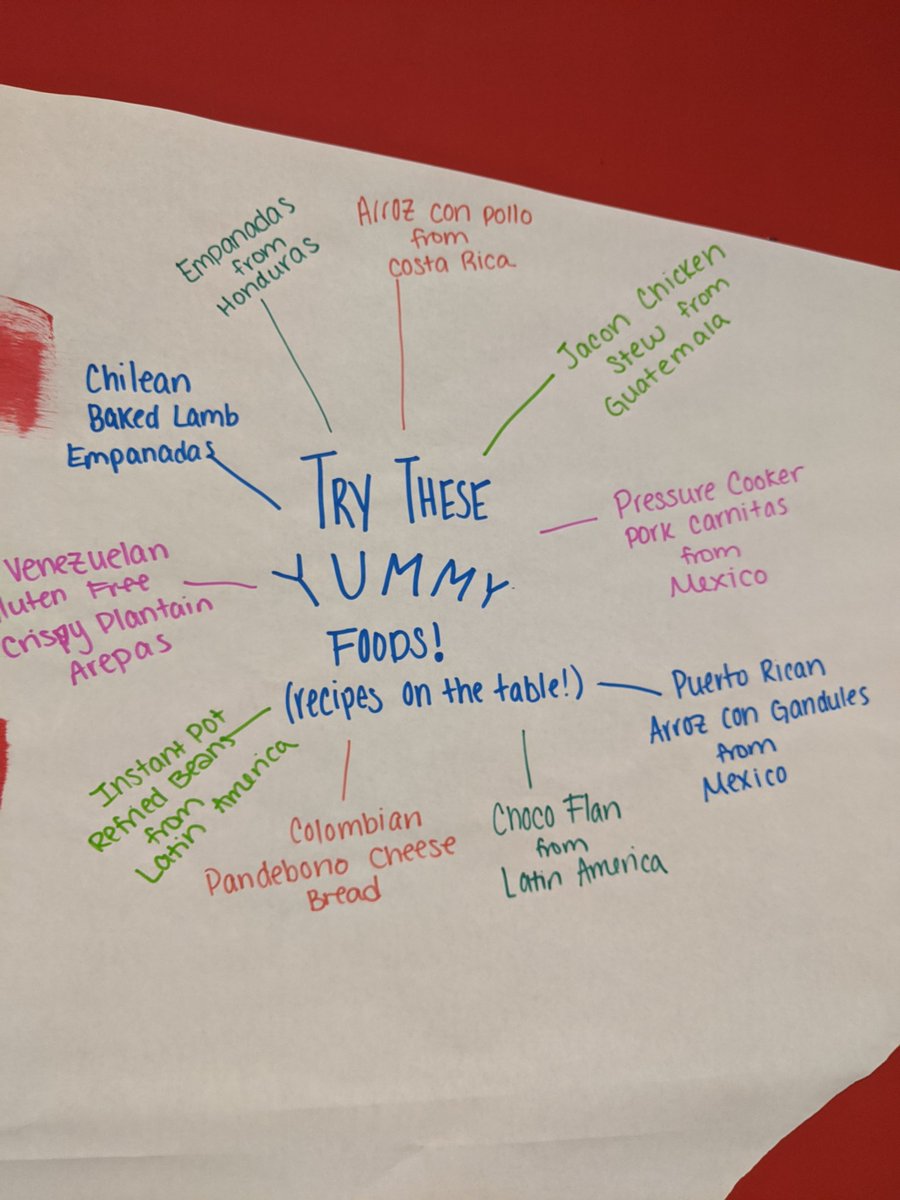 TRY THESE
YUMMY
FOODS!
(recipes on the table!)
Empanadas
from
Honduras
Arroz con pollo
from
Costa Rica
Jacon Chicken
Stew from
Guatemala
Pressure Cooker
Pork Carnitas
from
Mexico
Puerto Rican
Arroz con Gandules
from
Mexico
Choco Flan
from
Latin America
Colombian
Pandebono Cheese
Bread
Instant Pot
Refried Beans
from
Latin America
Venezuelan
luten Free
Crispy Plantain
Arepas
Chilean
Baked Lamb
Empanadas